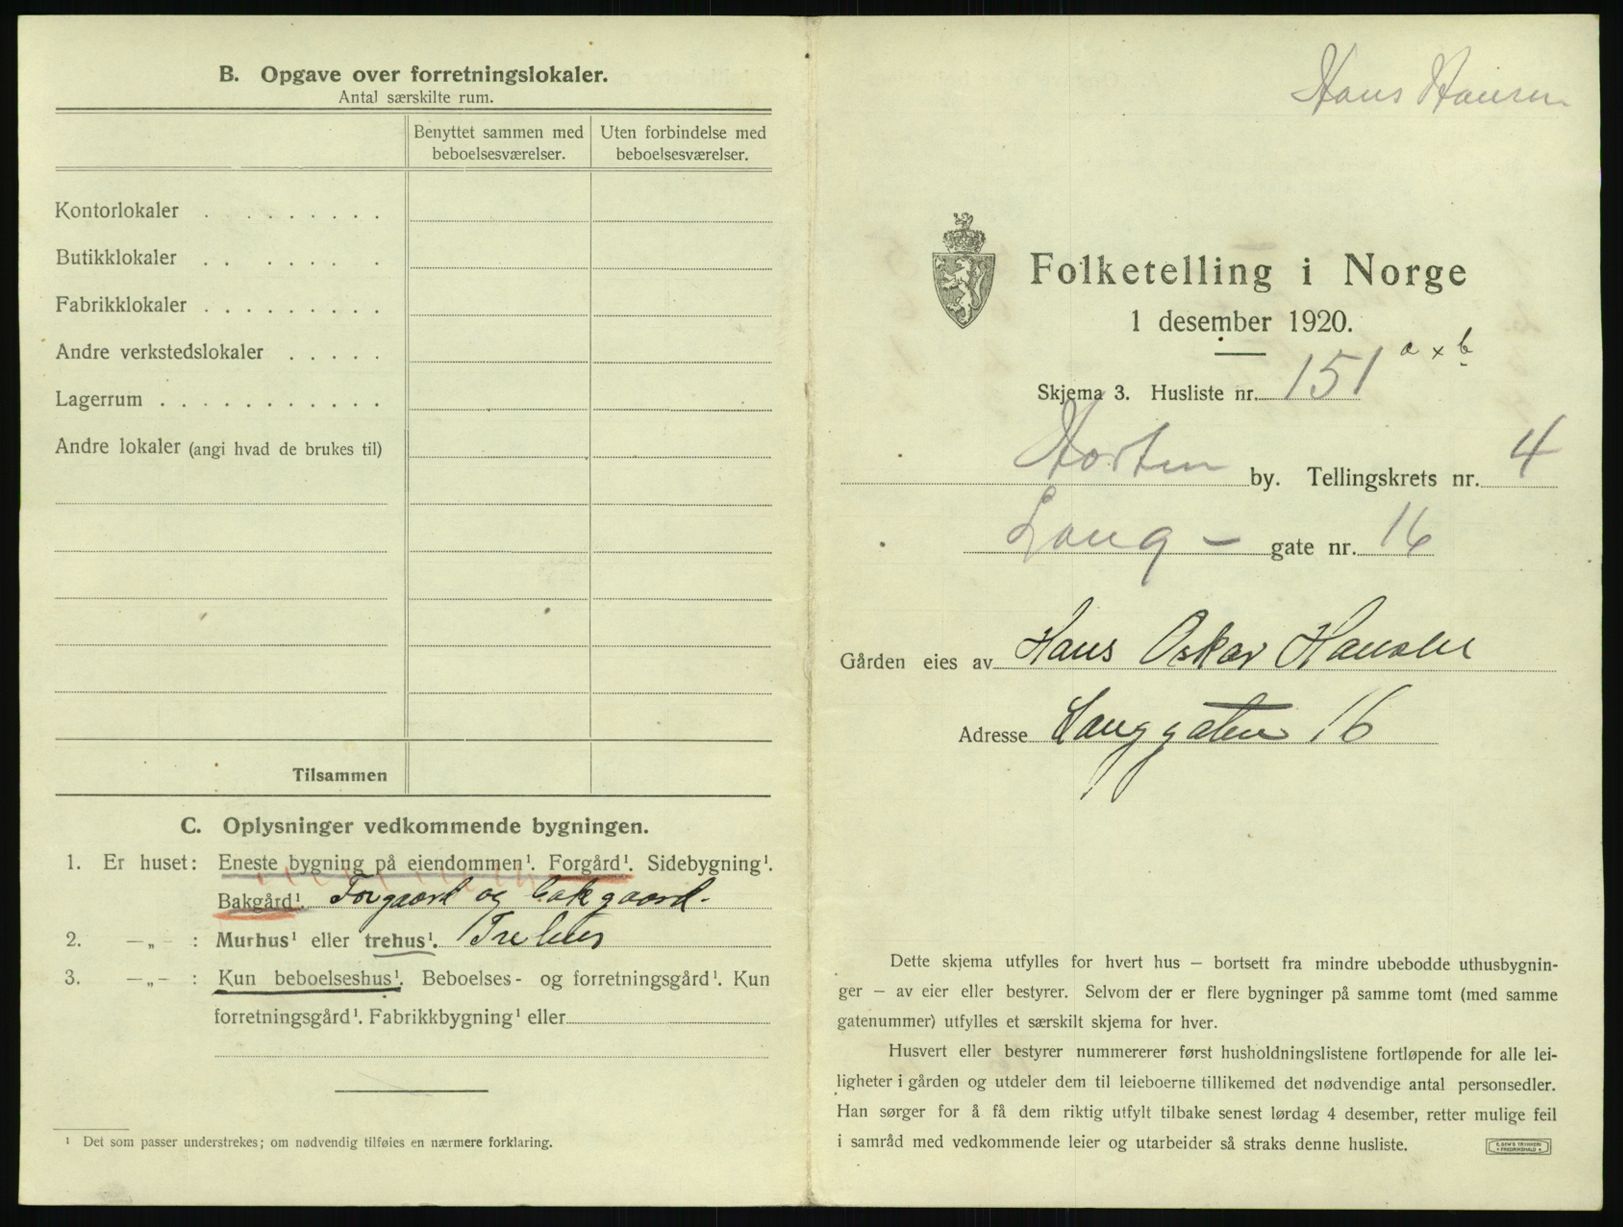 B. Opgave over forretningslokaler.
Antal særskilte rum.
Benyttet sammen med beboelsesværelser.
Uten forbindelse med beboelsesværelser.
Kontorlokaler . . . . . . . .
Butikklokaler . . . . . . .
Fabrikklokaler . . . . . . . .
Andre verkstedslokaler . . . . .
Lagerrum . . . . . . . . . . .
Andre lokaler (angi hvad de brukes til)
Tilsammen
C. Oplysninger vedkommende bygningen.
1. Er huset: Eneste bygning på eiendommen¹. Forgård¹. Sidebygning¹.
Bakgård¹. Forgaard og bakgaard.
2. —„— : Murhus¹ eller trehus¹. Trehus
3. —„— : Kun beboelseshus¹. Beboelses- og forretningsgård¹. Kun
forretningsgård¹. Fabrikkbygning¹ eller
¹ Det som passer understrekes; om nødvendig tilføies en nærmere forklaring.
Hans Hansen
Folketelling i Norge
1 desember 1920.
Skjema 3. Husliste nr. 151 a × b
Horten by. Tellingskrets nr. 4
Lang - gate nr. 16
Gården eies av Hans Oskar Hansen
Adresse Langgaten 16
Dette skjema utfylles for hvert hus — bortsett fra mindre ubebodde uthusbygnin-
ger — av eier eller bestyrer. Selvom der er flere bygninger på samme tomt (med samme
gatenummer) utfylles et særskilt skjema for hver.
Husvert eller bestyrer nummererer først husholdningslistene fortløpende for alle lei-
ligheter i gården og utdeler dem til leieboerne tillikemed det nødvendige antal personsedler.
Han sørger for å få dem riktig utfylt tilbake senest lørdag 4 desember, retter mulige feil
i samråd med vedkommende leier og utarbeider så straks denne husliste.